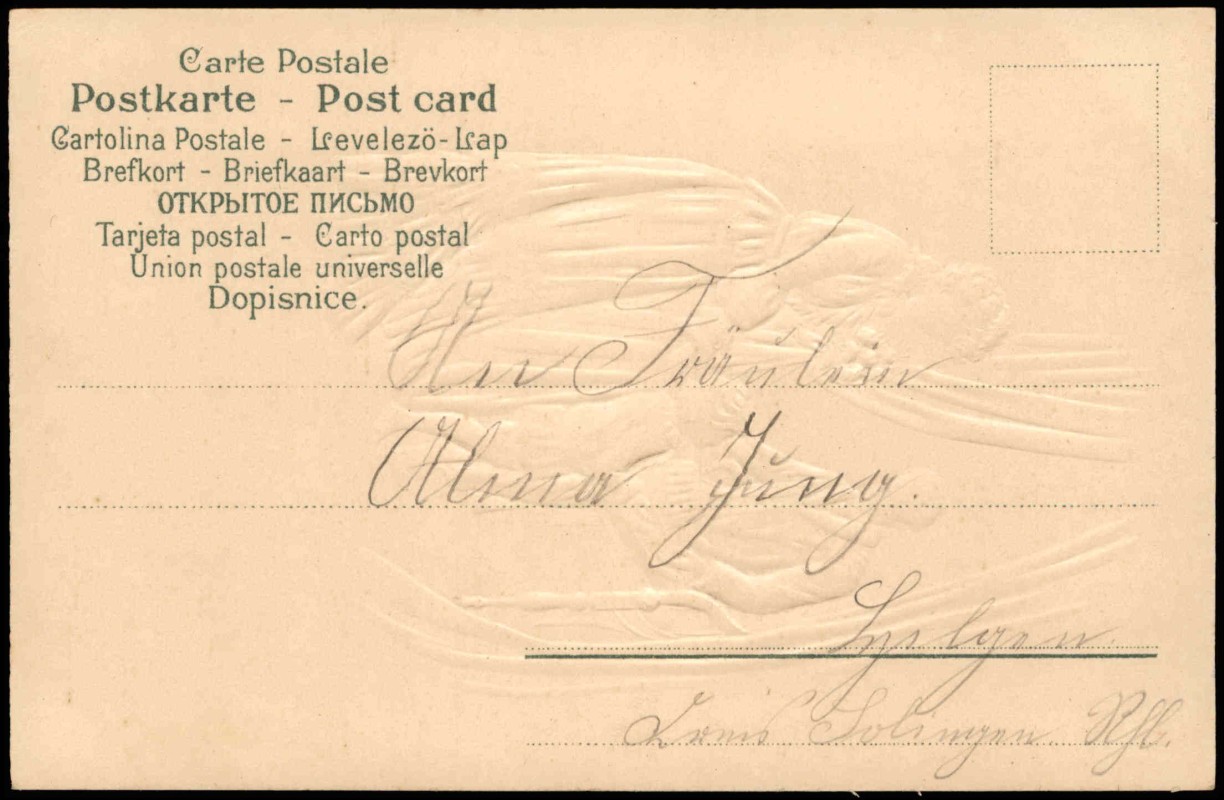 Carte Postale
Postkarte - Post card
Cartolina Postale - Levelezö-Lap
Brefkort - Briefkaart - Brevkort
ОТКРЫТОЕ ПИСЬМО
Tarjeta postal - Carto postal
Union postale universelle
Dopisnice.
An Fräulein
Alma Jung.
Kreis Solingen Rhl.